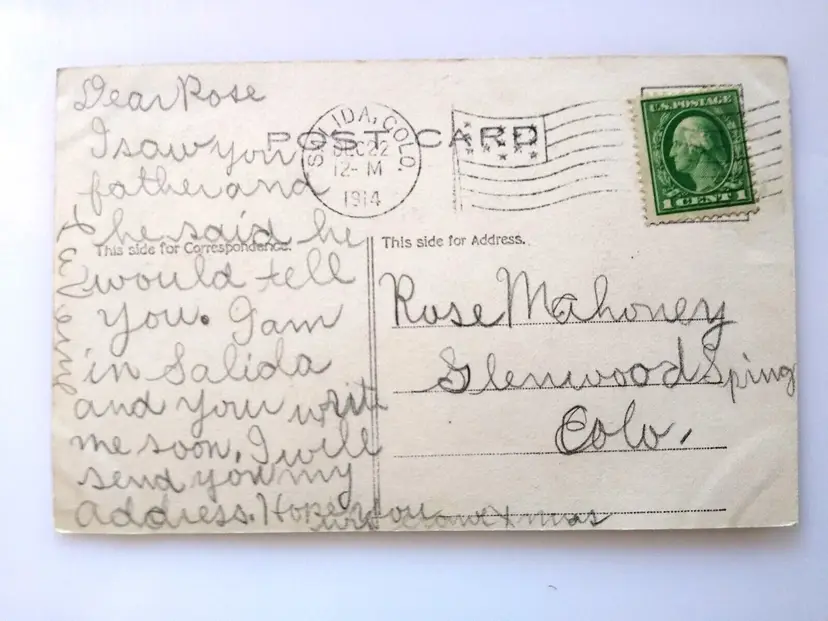 Dear Rose
I saw you
father and
he said he
would tell
you. I am
in Salida
and you write
me soon. I will
send you my
address. Hope you
Xmas
POST CARD
SALIDA, COLO.
DEC 22
12- M
1914
U.S. POSTAGE
1 CENT 1
This side for Correspondence.
This side for Address.
Rose Mahoney
Glenwood Spring
Colo.